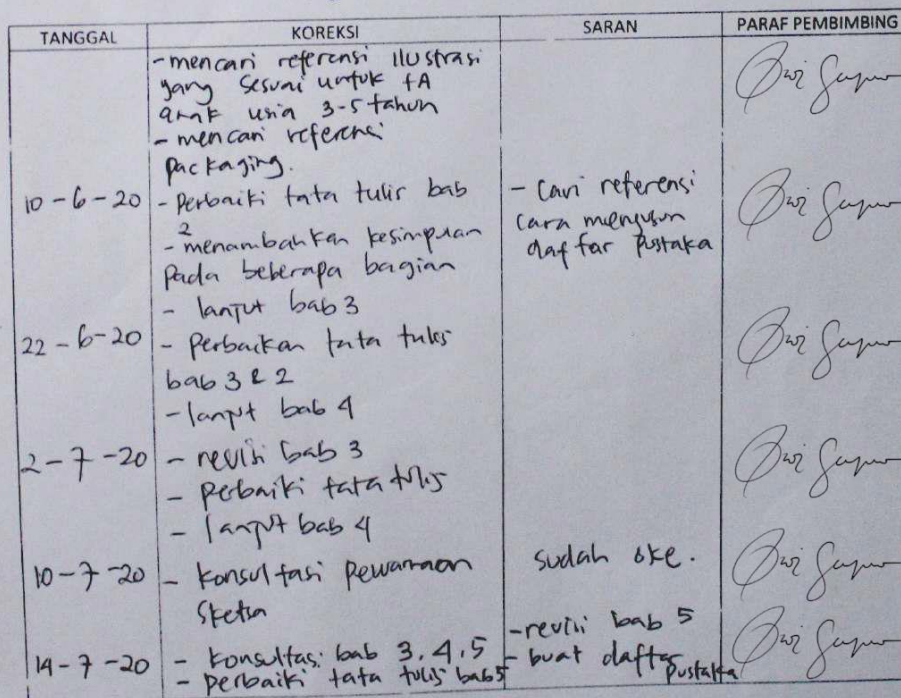 TANGGAL KOREKSI SARAN PARAF PEMBIMBING
- mencari referensi ilustrasi
yang sesuai untuk TA
anak usia 3-5 tahun
- mencari referensi
packaging.
10 - 6 - 20
- Perbaiki tata tulis bab
2
- menambahkan kesimpulan
pada beberapa bagian
- lanjut bab 3
- Cari referensi
cara menyusun
daftar Pustaka
22 - 6 - 20
- Perbaikan tata tulis
bab 3 & 2
- lanjut bab 4
2 - 7 - 20
- revisi bab 3
- Perbaiki tata tulis
- lanjut bab 4
10 - 7 - 20
- Konsultasi Pewarnaan
Sketsa
sudah oke.
14 - 7 - 20
- Konsultasi bab 3, 4, 5
- perbaiki tata tulis bab 5
- revisi bab 5
- buat daftar
pustaka